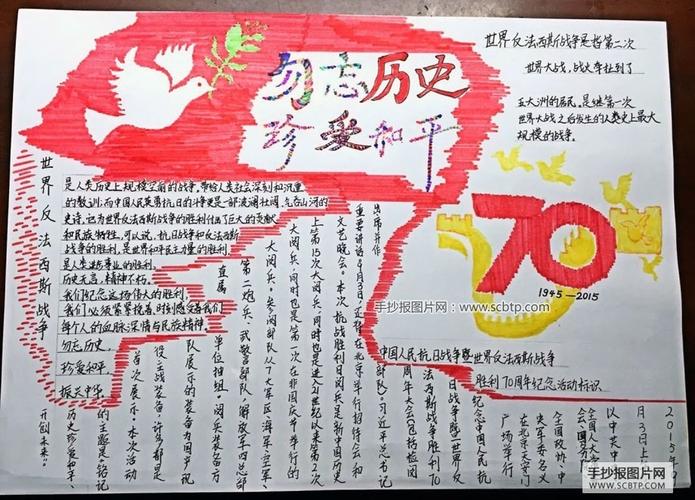 勿忘历史
珍爱和平
世界反法西斯战争是指第二次
世界大战,战火牵扯到了
五大洲的居民,是继第一次
世界大战之后发生的人类史上最大
规模的战争。
世界反法西斯战争
是人类历史上规模空前的战争,带给人类社会深刻和沉重
的教训;而中国人民英勇抗日的将更是一部波澜壮阔,气吞山河的
史诗,这为世界反法西斯战争的胜利付出了巨大的贡献
和民族牺牲,可以说,抗日战争和反法西斯
战争的胜利,是世界和平民主力量的胜利,
是人类进步事业的胜利。
历史无言,精神不朽。
我们纪念这场伟大的胜利,
我们必须紧紧挽着,时刻感受着我们
每个人的血脉深情与民族精神。
勿忘历史,
珍爱和平
振兴中华
70
1945—2015
手抄报图片网:www.scbtp.com
中国人民抗日战争暨世界反法西斯战争
胜利70周年纪念活动标识
2015年9
月3日上
以中共中
全国人大常
会、国务
全国政协、中
央军委名义
在北京天安门
广场举行
纪念中国人民抗
日战争暨世界反
法西斯战争胜利70
周年大会(包括检阅
部队)习近平总书记
出席并作
重要讲话9月3日,还将在北京举行招待会和
文艺晚会。本次抗战胜利日阅兵是新中国历史
上第15次大阅兵,同时也是进入21世纪以来第2次
大阅兵,同时也是第一次在非国庆节举行的
大阅兵。参阅部队从7大军区海军、空军、
第二炮兵、武警部队、解放军四总部
直属单位抽组。阅兵装备方
队展示的装备为国产现
役主战装备,许多都是
首次展示。本次活动
的主题是“铭记
历史珍爱和平、
开创未来”
手抄报图片网
SCBTP.COM